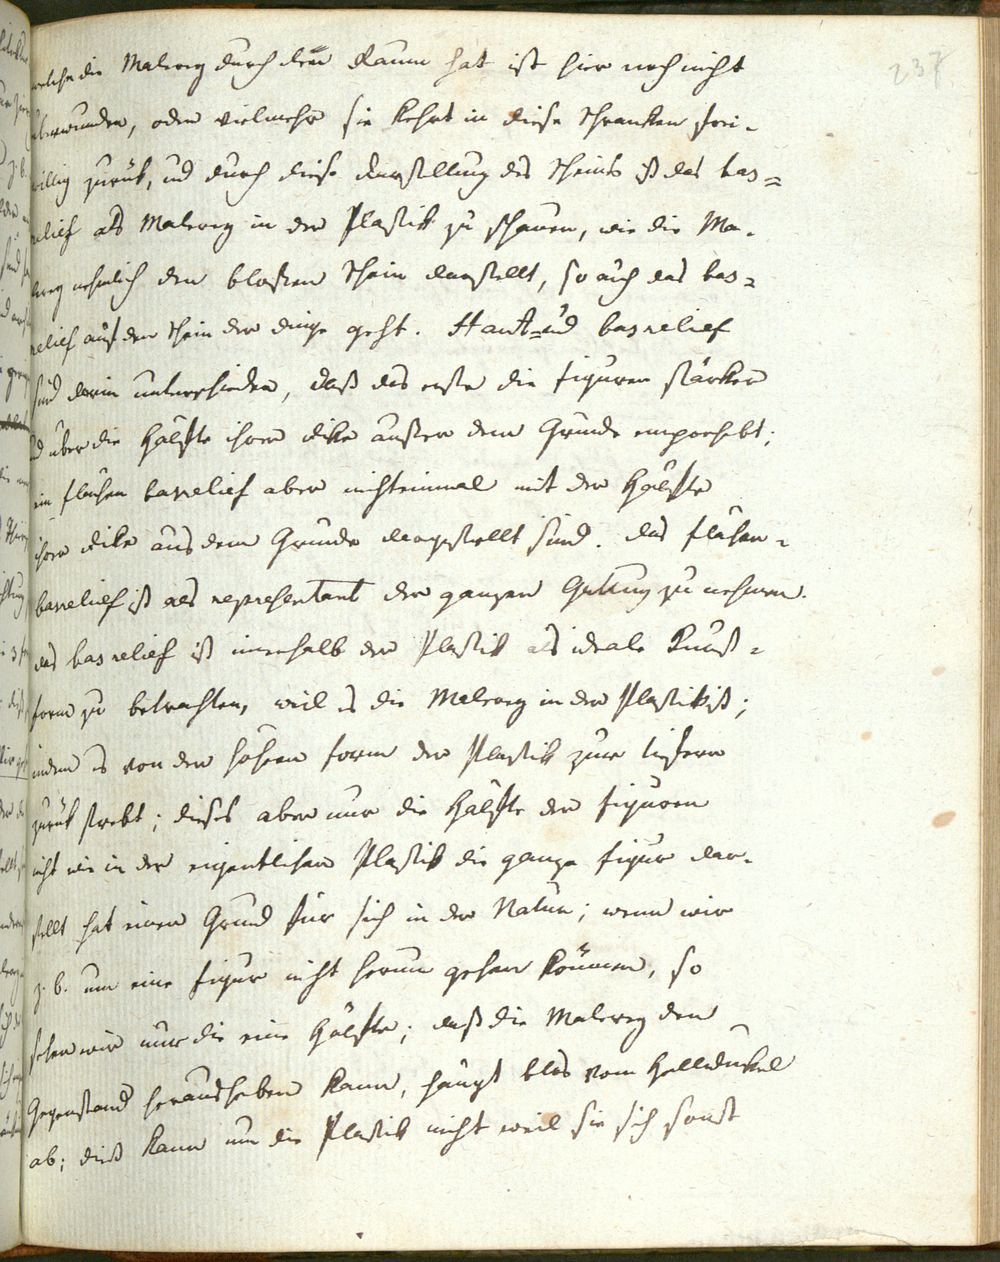 237
welche die Malerey durch den Raum hat ist hier noch nicht
überwunden, oder vielmehr sie kehrt in diese Schranken frei-
willig zurük, und durch diese Darstellung des Scheins ist das bas=
relief als Malerey in der Plastik zu schauen, wie die Ma-
lerey nehmlich den blossen Schein darstellt, so auch das bas=
relief auf den Schein der dinge geht. Haut= und basrelief
sind darin unterschieden, daß das erste die Figuren stärker
und über die Hälfte ihrer dike ausser dem Grunde emporhebt;
im flachen basrelief aber nichteinmal mit der Hälfte
ihrer dike aus dem Grunde dargestellt sind. das flachen=
basrelief ist als representant der ganzen Gattung zu nehmen.
das basrelief ist innerhalb der Plastik als ideale Kunst=
form zu betrachten, weil es die Malerey in der Plastik ist;
indem es von der höhern Form der Plastik zur tiefern
zurük strebt; dieses aber nur die Hälfte der Figuren
nicht wie in der eigentlichen Plastik die ganze Figur dar-
stellt hat einen Grund für sich in der Natur; wenn wir
z. b. um eine Figur nicht herum gehen können, so
sehen wir nur die eine Hälfte; daß die Malerey den
Gegenstand herausheben kann, hängt blos vom Helldunkel
ab; dieß kann nun die Plastik nicht weil sie sich sonst